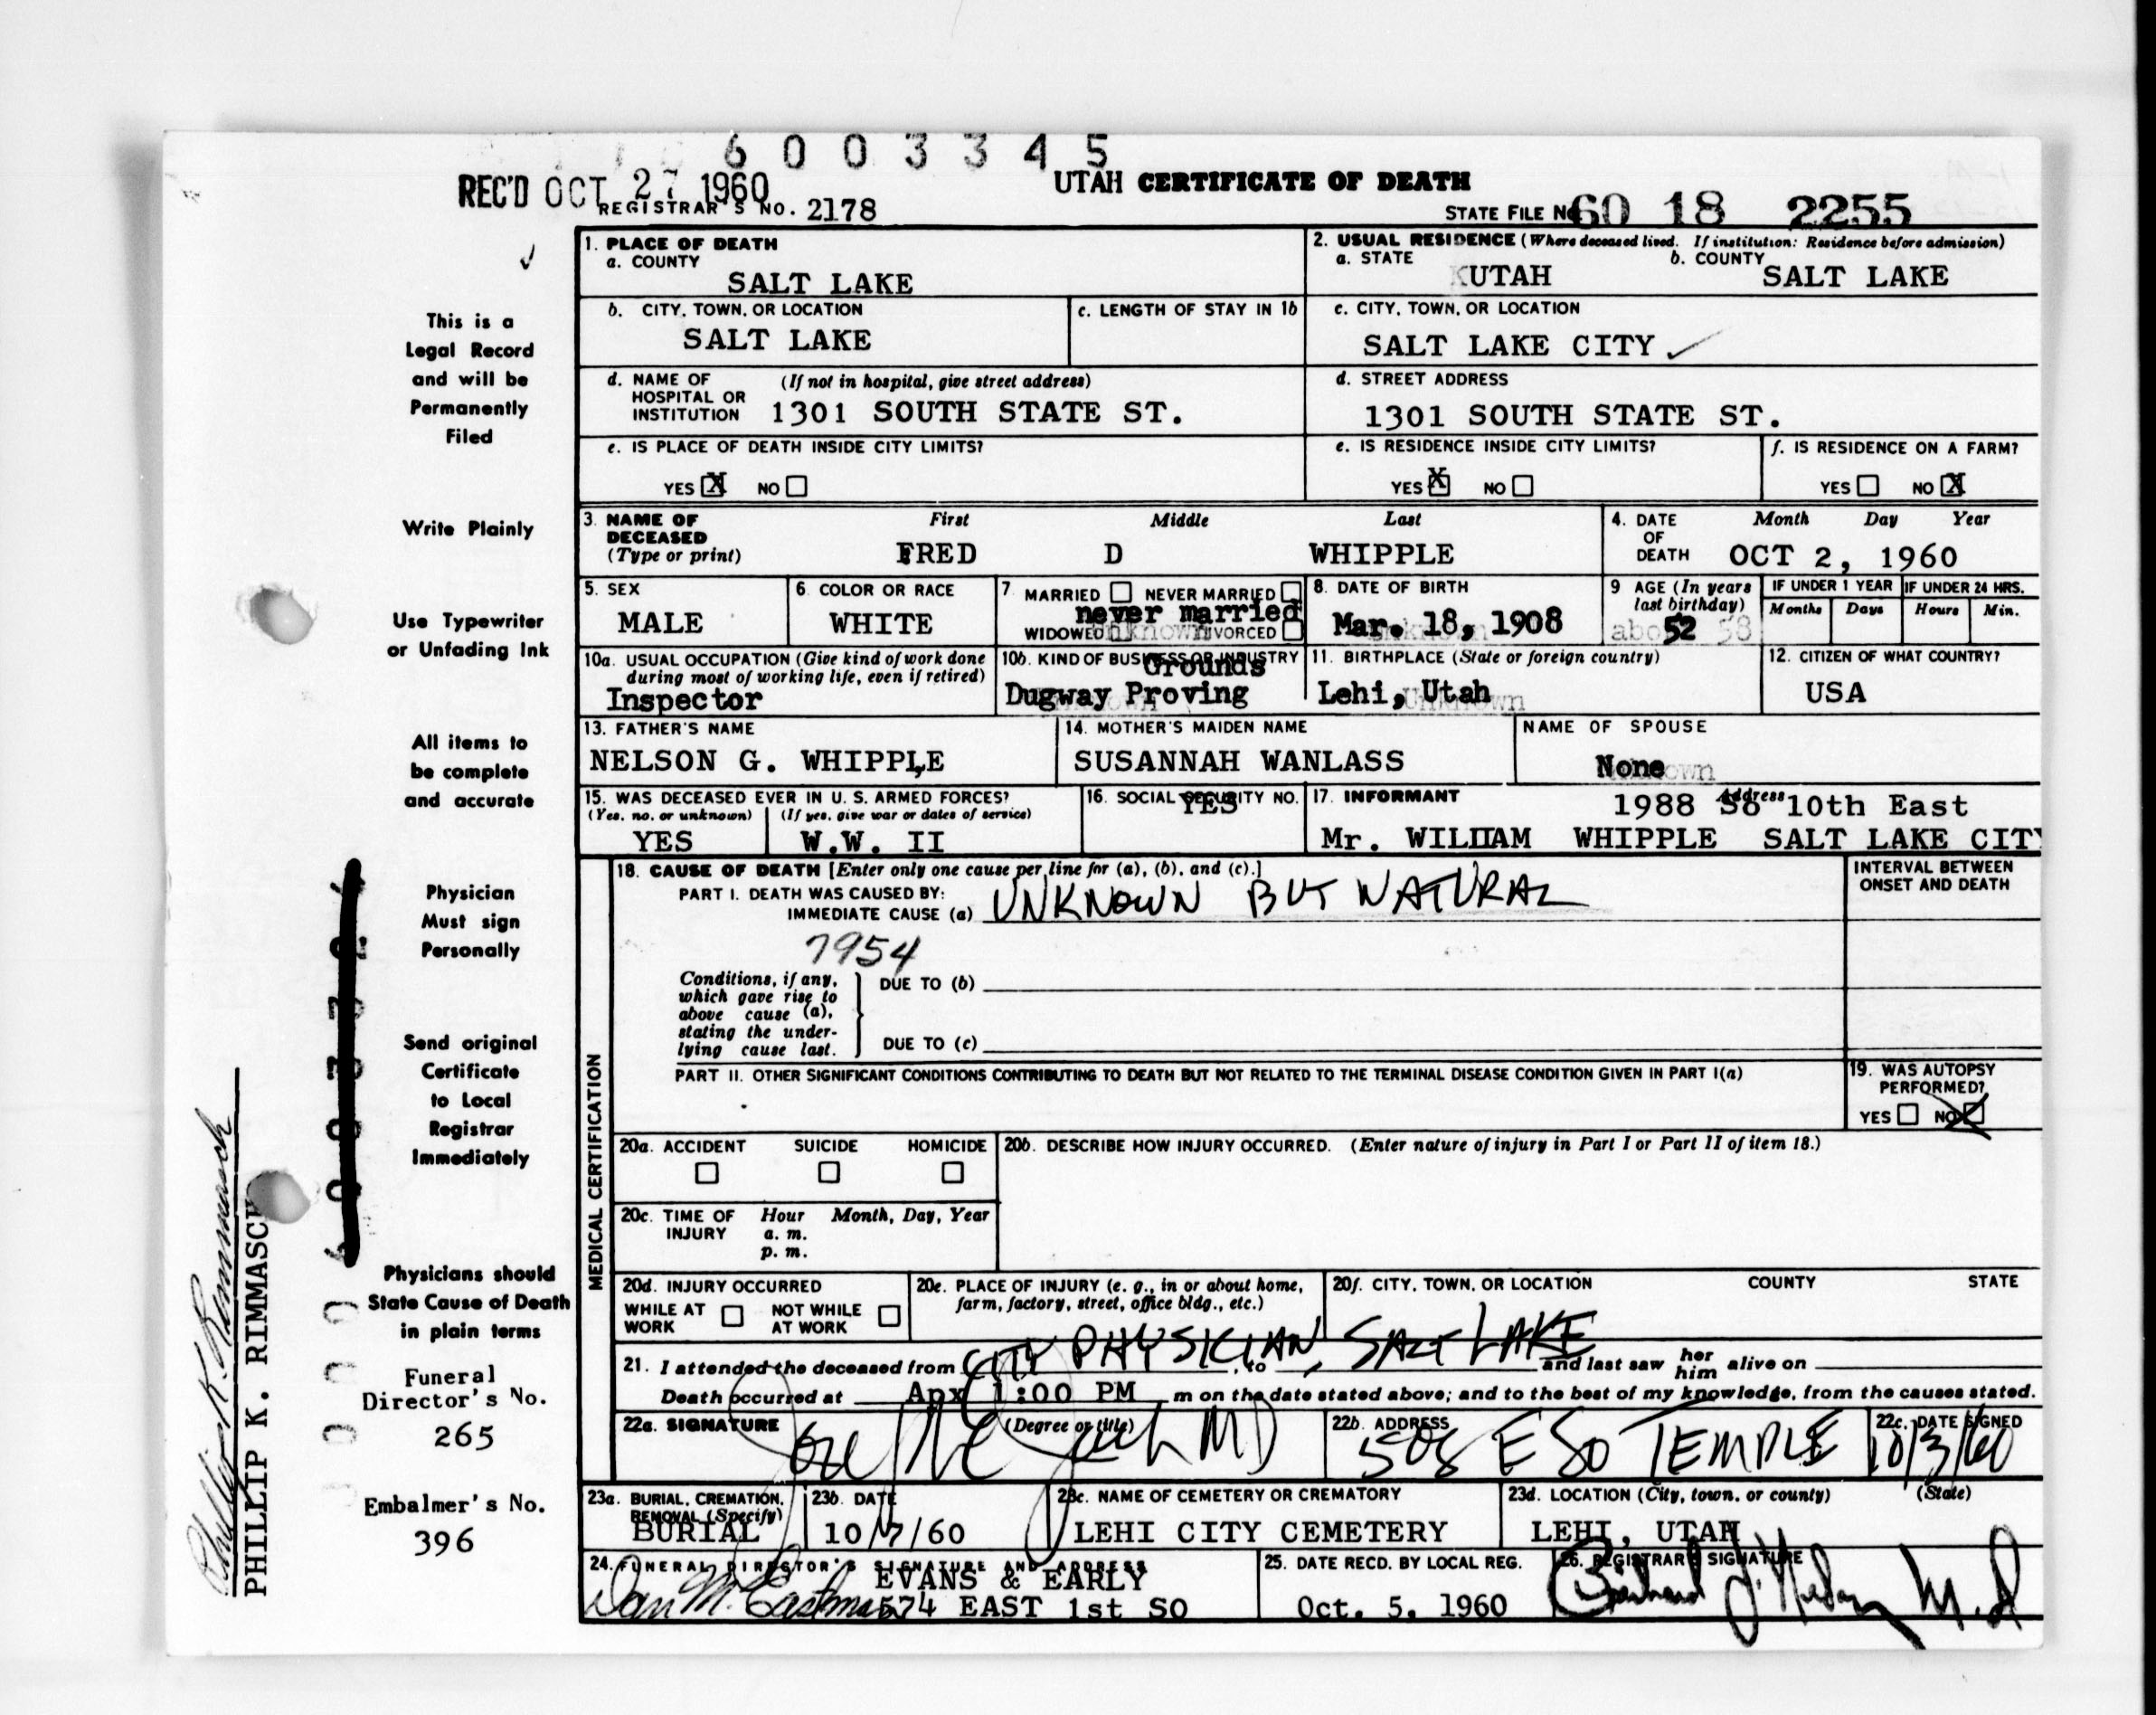 6 0 0 3 3 4 5
REC'D OCT 27 1960
REGISTRAR'S NO. 2178
UTAH CERTIFICATE OF DEATH
STATE FILE No 60 18 2255
This is a
Legal Record
and will be
Permanently
Filed
Write Plainly
Use Typewriter
or Unfading Ink
All items to
be complete
and accurate
Physician
Must sign
Personally
Send original
Certificate
to Local
Registrar
Immediately
Physicians should
State Cause of Death
in plain terms
Funeral
Director's No.
265
Embalmer's No.
396
PHILLIP K. RIMMASCH
1. PLACE OF DEATH
a. COUNTY
SALT LAKE
2. USUAL RESIDENCE (Where deceased lived. If institution: Residence before admission)
a. STATE b. COUNTY
UTAH SALT LAKE
b. CITY, TOWN, OR LOCATION
SALT LAKE
c. LENGTH OF STAY IN 1b
c. CITY, TOWN, OR LOCATION
SALT LAKE CITY
d. NAME OF (If not in hospital, give street address)
HOSPITAL OR
INSTITUTION 1301 SOUTH STATE ST.
d. STREET ADDRESS
1301 SOUTH STATE ST.
e. IS PLACE OF DEATH INSIDE CITY LIMITS?
YES X NO
e. IS RESIDENCE INSIDE CITY LIMITS?
YES X NO
f. IS RESIDENCE ON A FARM?
YES NO X
3. NAME OF First Middle Last
DECEASED
(Type or print) FRED D WHIPPLE
4. DATE Month Day Year
OF
DEATH OCT 2, 1960
5. SEX
MALE
6. COLOR OR RACE
WHITE
7 MARRIED NEVER MARRIED
never married
WIDOWED DIVORCED
8. DATE OF BIRTH
Mar. 18, 1908
9 AGE (In years
last birthday)
52
IF UNDER 1 YEAR IF UNDER 24 HRS.
Months Days Hours Min.
10a. USUAL OCCUPATION (Give kind of work done
during most of working life, even if retired)
Inspector
10b. KIND OF BUSINESS OR INDUSTRY
Grounds
Dugway Proving
11. BIRTHPLACE (State or foreign country)
Lehi, Utah
12. CITIZEN OF WHAT COUNTRY?
USA
13. FATHER'S NAME
NELSON G. WHIPPLE
14. MOTHER'S MAIDEN NAME
SUSANNAH WANLASS
NAME OF SPOUSE
None
15. WAS DECEASED EVER IN U. S. ARMED FORCES?
(Yes, no, or unknown) (If yes, give war or dates of service)
YES W.W. II
16. SOCIAL SECURITY NO.
YES
17. INFORMANT Address
1988 So 10th East
Mr. WILLIAM WHIPPLE SALT LAKE CITY
MEDICAL CERTIFICATION
18. CAUSE OF DEATH [Enter only one cause per line for (a), (b), and (c).]
PART I. DEATH WAS CAUSED BY:
IMMEDIATE CAUSE (a) UNKNOWN BUT NATURAL
7954
Conditions, if any,
which gave rise to
above cause (a),
stating the under-
lying cause last.
DUE TO (b)
DUE TO (c)
INTERVAL BETWEEN
ONSET AND DEATH
PART II. OTHER SIGNIFICANT CONDITIONS CONTRIBUTING TO DEATH BUT NOT RELATED TO THE TERMINAL DISEASE CONDITION GIVEN IN PART I(a)
19. WAS AUTOPSY
PERFORMED?
YES NO X
20a. ACCIDENT SUICIDE HOMICIDE
20b. DESCRIBE HOW INJURY OCCURRED. (Enter nature of injury in Part I or Part II of item 18.)
20c. TIME OF Hour Month, Day, Year
INJURY a. m.
p. m.
20d. INJURY OCCURRED
WHILE AT NOT WHILE
WORK AT WORK
20e. PLACE OF INJURY (e. g., in or about home,
farm, factory, street, office bldg., etc.)
20f. CITY, TOWN, OR LOCATION COUNTY STATE
CITY PHYSICIAN, SALT LAKE
21. I attended the deceased from , to and last saw her him alive on
Death occurred at Apx 1:00 PM m on the date stated above; and to the best of my knowledge, from the causes stated.
22a. SIGNATURE (Degree or title)
MD
22b. ADDRESS
508 E SO TEMPLE
22c. DATE SIGNED
10/3/60
23a. BURIAL, CREMATION,
REMOVAL (Specify)
BURIAL
23b. DATE
10/7/60
23c. NAME OF CEMETERY OR CREMATORY
LEHI CITY CEMETERY
23d. LOCATION (City, town, or county) (State)
LEHI, UTAH
24. FUNERAL DIRECTOR'S SIGNATURE AND ADDRESS
EVANS & EARLY
Dan M. Eastman 574 EAST 1st SO
25. DATE RECD. BY LOCAL REG.
Oct. 5, 1960
26. REGISTRAR'S SIGNATURE
M.D